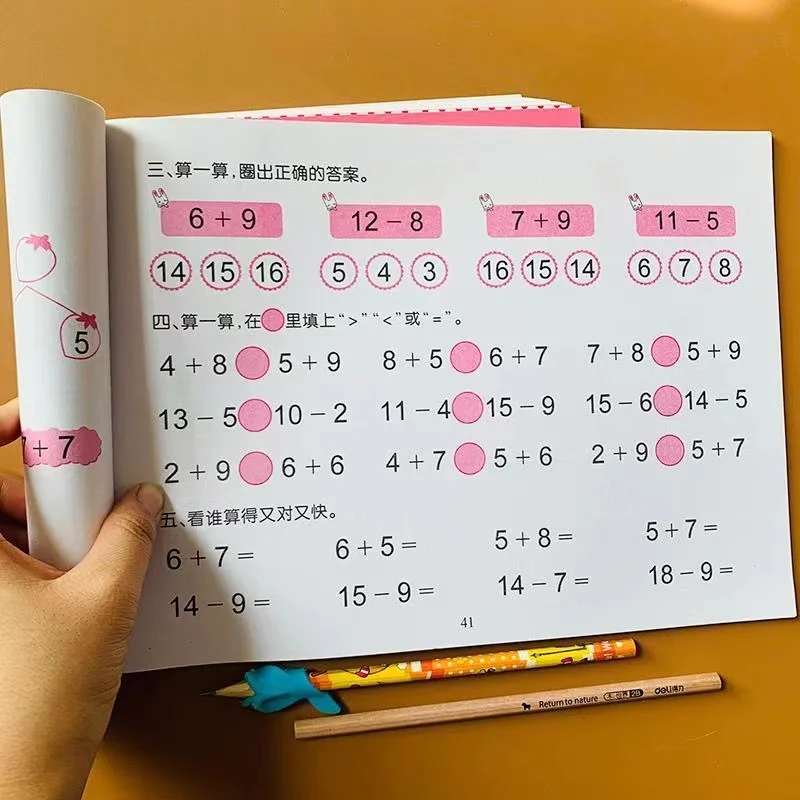 三、算一算,圈出正确的答案。
6 + 9 12 − 8 7 + 9 11 − 5
14 15 16 5 4 3 16 15 14 6 7 8
四、算一算,在 里填上“>”“<”或“=”。
4 + 8 5 + 9 8 + 5 6 + 7 7 + 8 5 + 9
13 − 5 10 − 2 11 − 4 15 − 9 15 − 6 14 − 5
2 + 9 6 + 6 4 + 7 5 + 6 2 + 9 5 + 7
五、看谁算得又对又快。
6 + 7 = 6 + 5 = 5 + 8 = 5 + 7 =
14 − 9 = 15 − 9 = 14 − 7 = 18 − 9 =
41
5
+ 7
Return to nature 2B deli得力